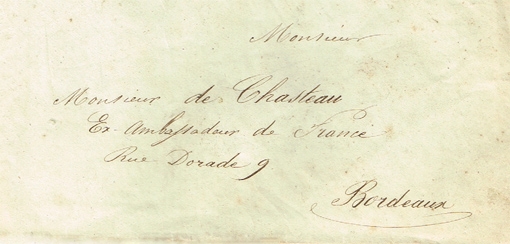 Monsieur
Monsieur de Chasteau
Ex-Ambassadeur de France
Rue Dorade 9
Bordeaux